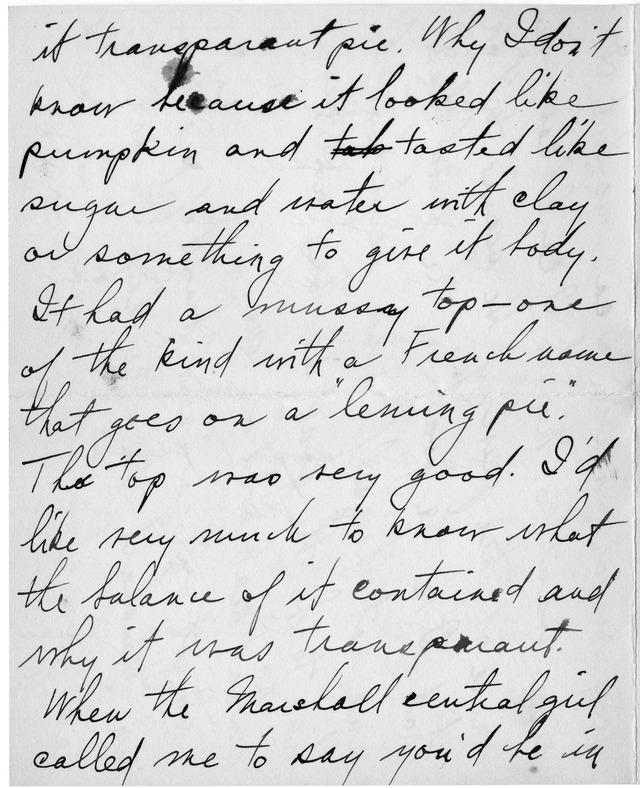 it transparant pie. Why I don't
know because it looked like
pumpkin and tasted like
sugar and water with clay
or something to give it body.
It had a mussy top—one
of the kind with a French name
that goes on a "leming pie".
The top was very good. I'd
like very much to know what
the balance of it contained and
why it was transparant.
When the Marshall central girl
called me to say you'd be in